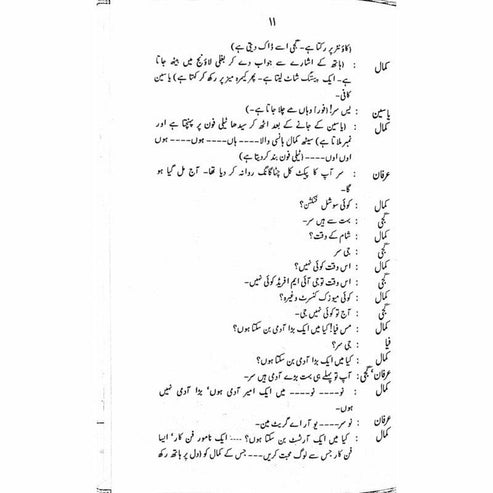 ۱۱
(کاؤنٹر پر رکتا ہے۔ گجی اسے ڈاک دیتی ہے)
کمال : (ہاتھ کے اشارے سے جواب دے کر بغلی لاؤنج میں بیٹھ جاتا
ہے۔ ایک پینگ شاٹ لیتا ہے۔ پھر کیمرہ میز پر رکھ کر کہتا ہے) یاسین
کافی۔
یاسین : یس سر! (فوراً وہاں سے چلا جاتا ہے۔)
کمال : (یاسین کے جانے کے بعد اٹھ کر سیدھا ٹیلی فون پر پہنچتا ہے اور
نمبر ملاتا ہے) سیٹھ کمال ہانسی والا---- ہاں---- ہوں---- ہوں----
اوں اوں---- (ٹیلی فون بند کر دیتا ہے)
عرفان : سر آپ کا پیکٹ کل چٹاگانگ روانہ کر دیا تھا۔ آج مل گیا ہو
گا۔
کمال : کوئی سوشل فنکشن؟
گجی : بہت سے ہیں سر۔
کمال : شام کے وقت؟
گجی : جی سر
کمال : اس وقت کوئی نہیں؟
گجی : اس وقت تو جی آئی ایم افریڈ کوئی نہیں۔
کمال : کوئی میوزک کنسرٹ وغیرہ؟
گجی : آج تو کوئی نہیں جی۔
کمال : مس فیا! کیا میں ایک بڑا آدمی بن سکتا ہوں؟
فیا : جی سر؟
کمال : کیا میں ایک بڑا آدمی بن سکتا ہوں؟
عرفان، گجی: آپ تو پہلے ہی بہت بڑے آدمی ہیں سر۔
کمال : نو---- نو---- میں ایک امیر آدمی ہوں، بڑا آدمی نہیں
ہوں۔
عرفان : نو سر---- یو آر اے گریٹ مین۔
کمال : کیا میں ایک آرٹسٹ بن سکتا ہوں؟ ---- ایک نامور فن کار، ایسا
فن کار جس سے لوگ محبت کریں--- جس کے کمال کو (دل پر ہاتھ رکھ